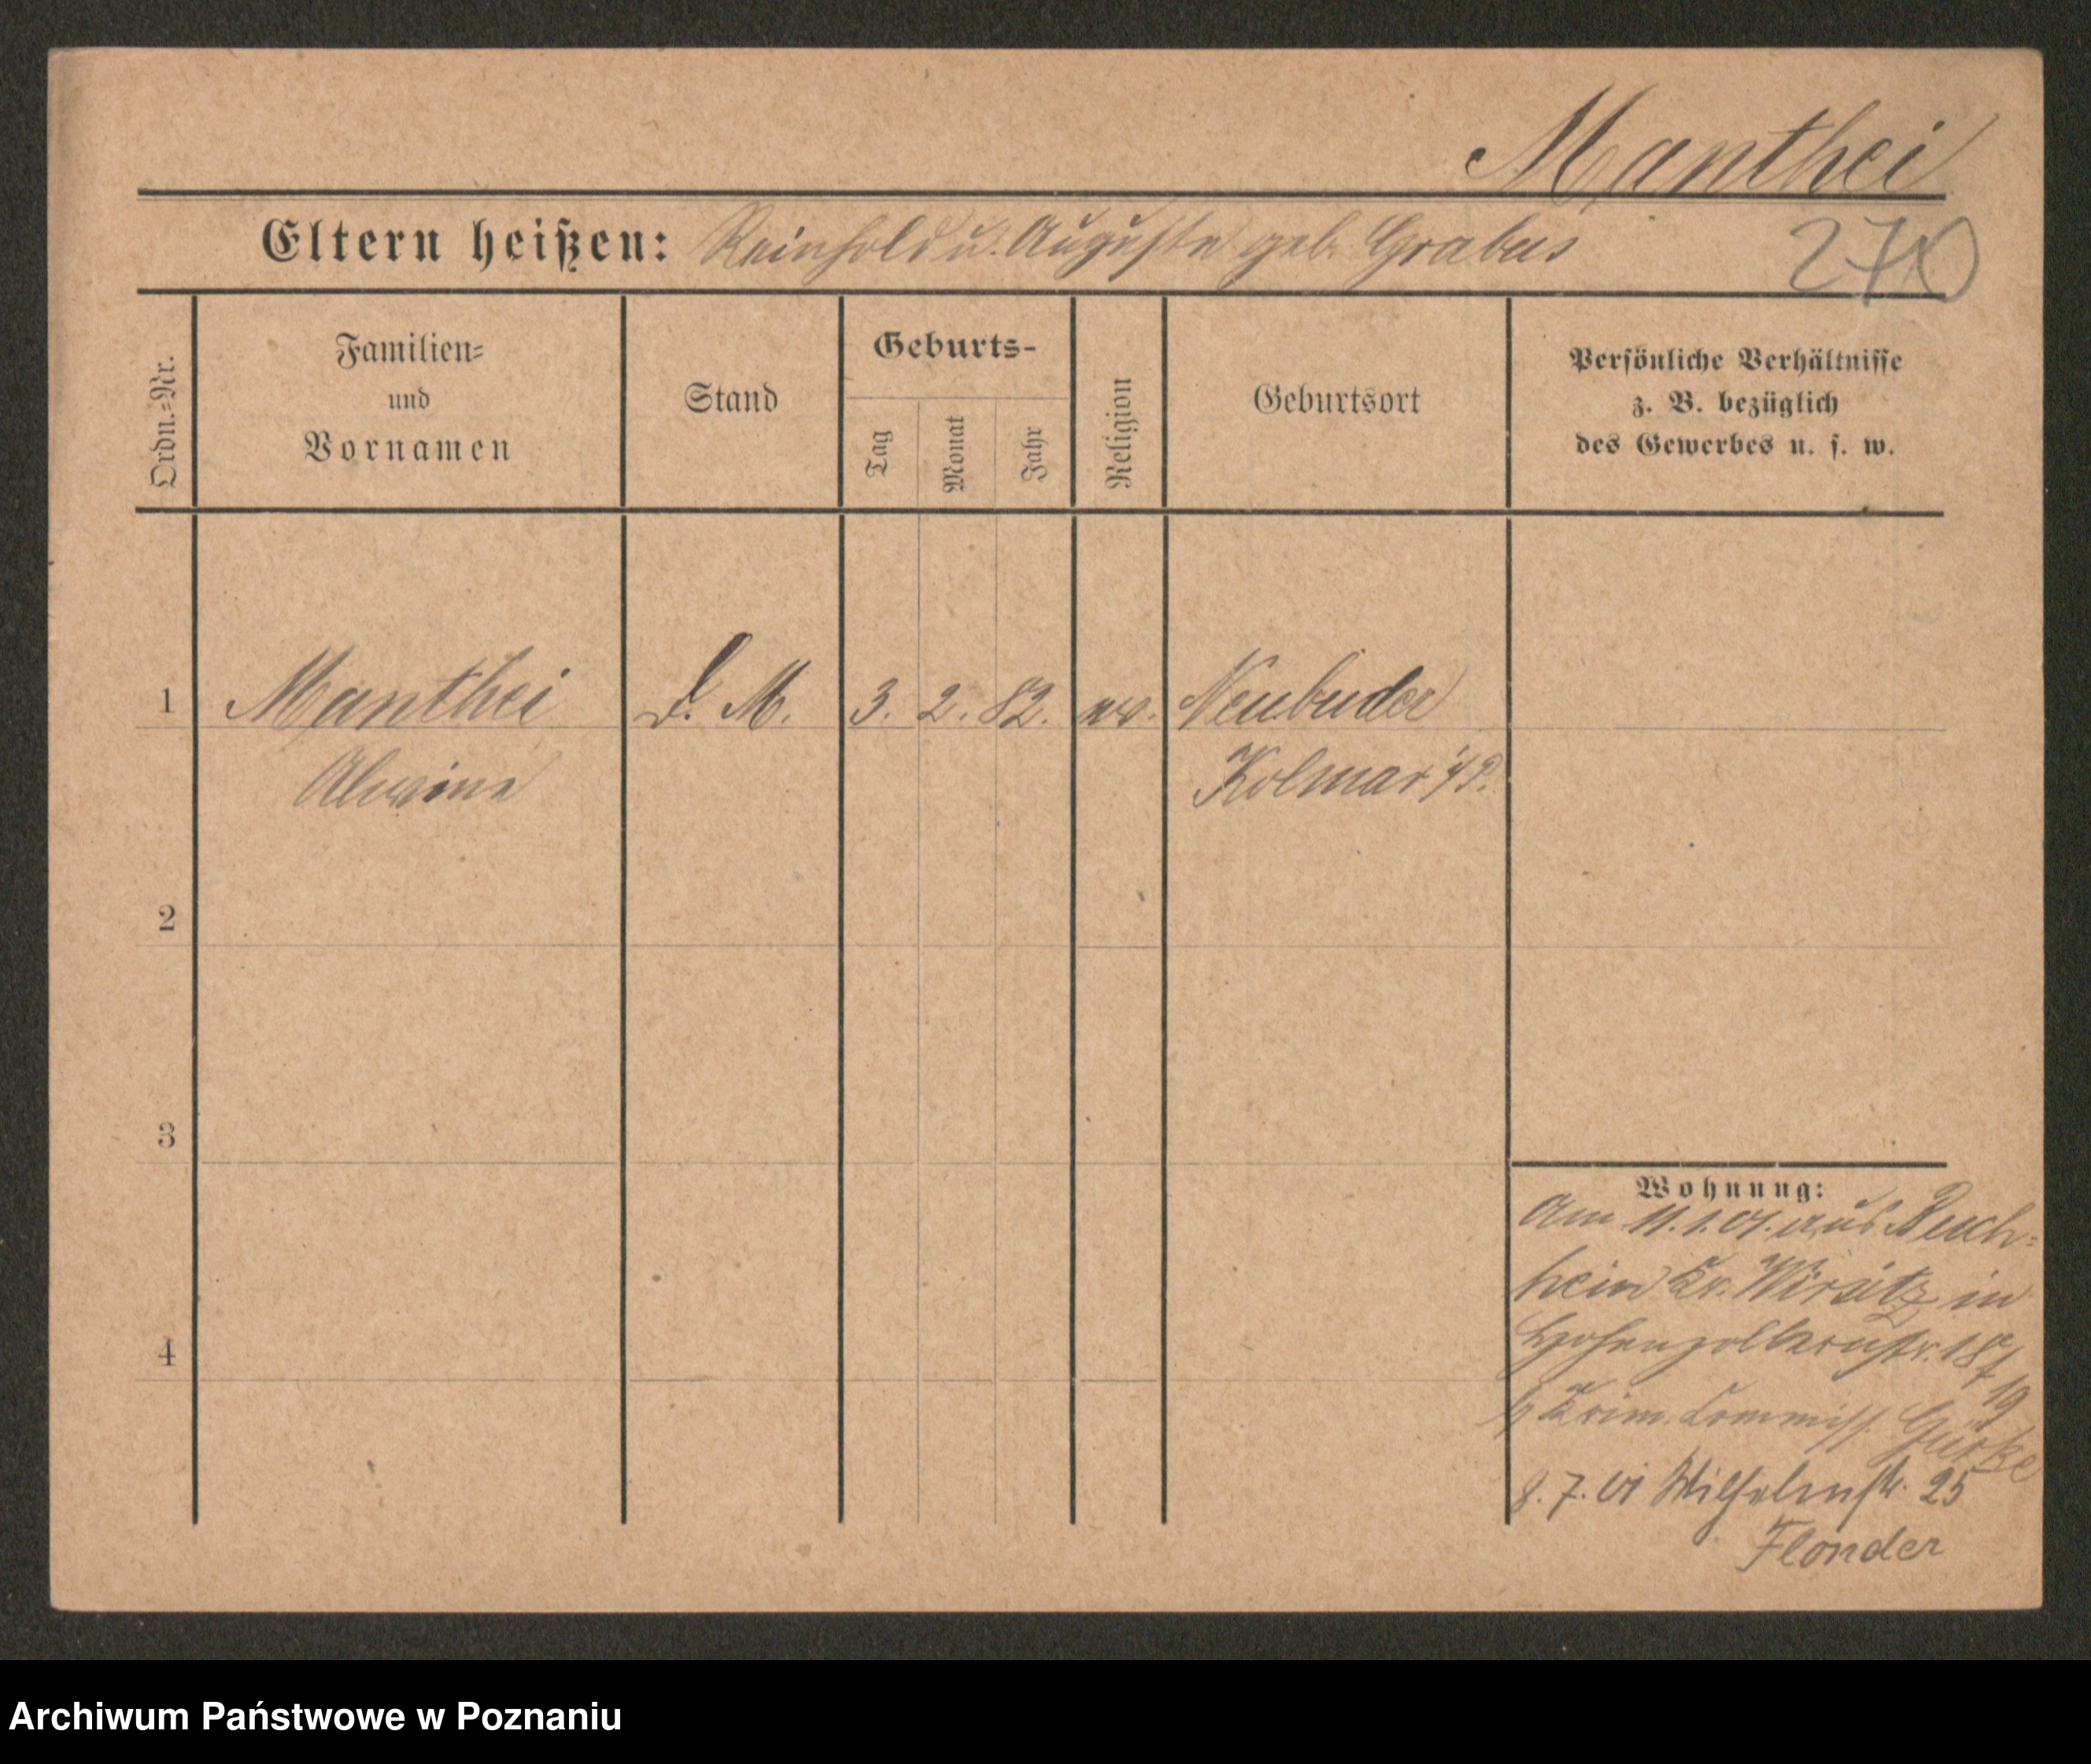 Manthei
Eltern heißen: Reinhold u. Auguste geb. Grabus
270
Ordn.=Nr.
Familien=
und
Vornamen
Stand
Geburts-
Tag
Monat
Jahr
Religion
Geburtsort
Persönliche Verhältnisse
z. B. bezüglich
des Gewerbes u. s. w.
1 Manthei D. M. 3. 2. 82. ev. Neubuder
Alwine Kolmar i/P.
2
3
4
Wohnung:
Am 11.1.01. aus Reich-
hein Kr. Wirsitz in
Hohenzollernstr. 18/
19
b Krim. Commiss. Gürke
8. 7. 01 Wilhelmstr. 25
Flonder
Archiwum Państwowe w Poznaniu